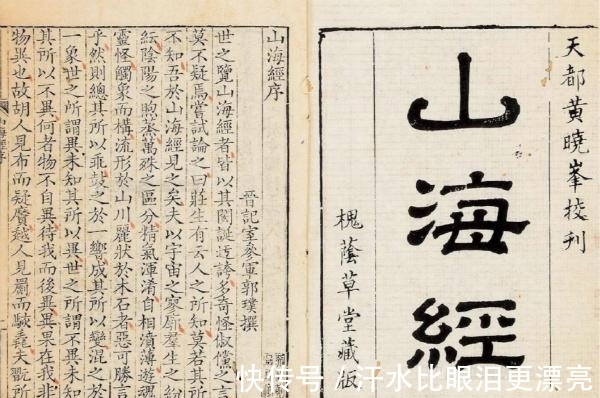 天都黃曉峯挍刊
山海經
槐蔭草堂藏版
山海經序
晉記室參軍郭璞撰
世之覽山海經者皆以其閎誕迂誇多奇怪俶儻之言
莫不疑焉嘗試論之曰莊生有云人之所知莫若其所
不知吾於山海經見之矣夫以宇宙之寥廓羣生之紛
紜陰陽之煦蒸萬殊之區分精氣渾淆自相濆薄遊魂
靈怪觸象而構流形於山川麗狀於木石者惡可勝言
乎然則總其所以乖鼓之於一響成其所以變混之於
一象世之所謂異未知其所以異世之所謂不異未知
其所以不異何者物不自異待我而後異異果在我非
物異也故胡人見布而疑黂越人見罽而駭毳夫翫所
快传号 / 汗水比眼泪更漂亮